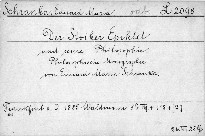 Schranka, Eduard Maria L 2098
Der Stoiker Epiktet
und seine Philosophie
Philosophische Monographie
von Eduard Maria Schranka.
Frankfurt a. O. 1885 Waldmann